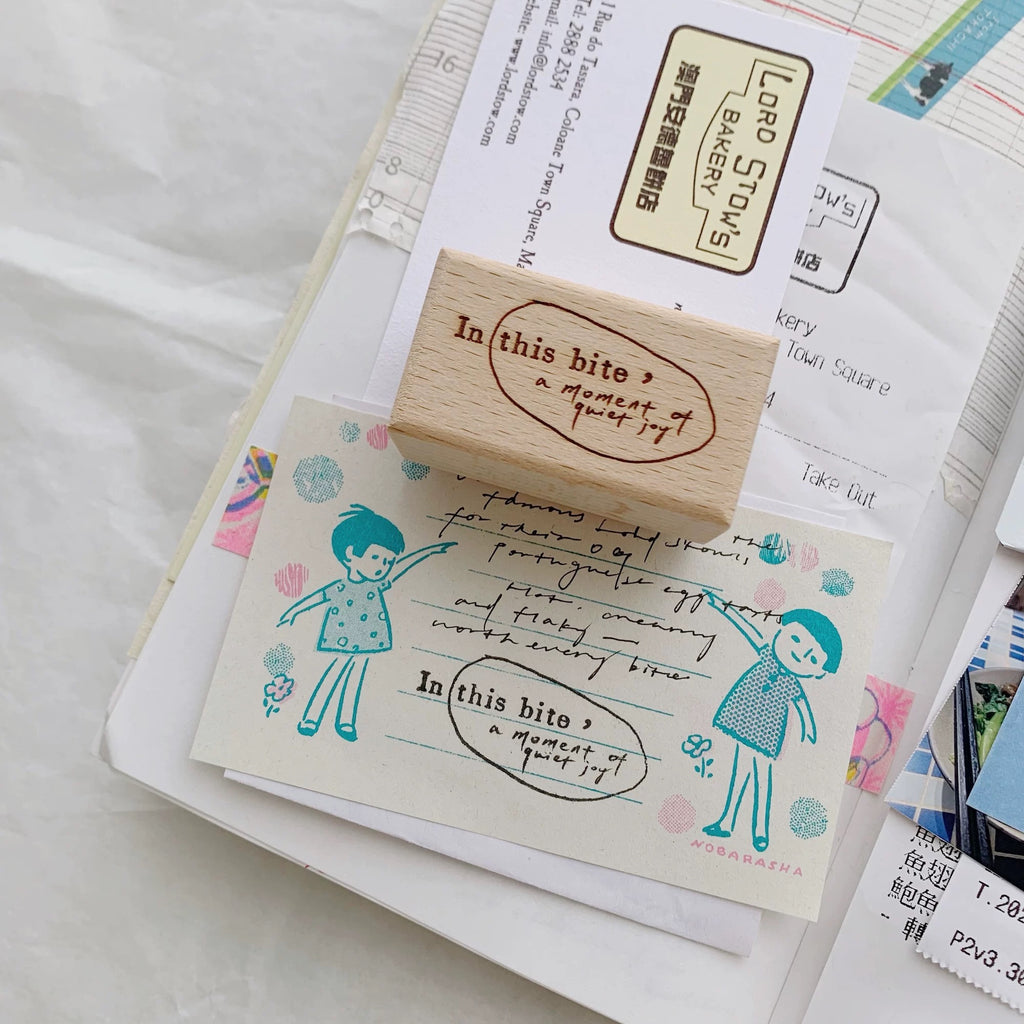 16
8
0
1 Rua do Tassara, Coloane Town Square, Ma
Tel: 2888 2534
email: info@lordstow.com
website: www.lordstow.com
LORD STOW'S
BAKERY
澳門安德魯餅店
OW'S
餅店
kery
Town Square
4
Take Out
In this bite,
a moment of
quiet joy
the
for their
portuguese egg tarts
Hot, creamy
and flaky —
worth every bite
In this bite,
a moment of
quiet joy
NOBARASHA
魚翅
魚翅
鮑魚
- 轉
T.202
P2v3.30